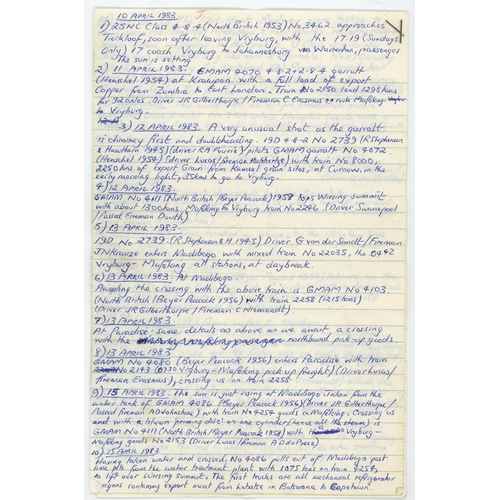 10 APRIL 1983
1) 25NC Class 4-8-4 (North British 1953) No, 3462 approaches
Tierkloof, soon after leaving Vryburg, with the 17.19 (Sundays
Only) 17 coach Vryburg to Johannesburg via Warrenton, passenger
The sun is setting
2) 11 APRIL 1983. GMAM 4070 4-8-2+2-8-4 garratt
(Henschel 1954) at Kraaipan with a full load of export
Copper from Zambia to East London. Train No 2150 load 1295 tons
for 92 axles. Driver JR Gilberthorpe / Fireman C Erasmus en route Mafeking
to Vryburg.
3) 12 APRIL 1983. A very unusual shot as the garratt
is chimney first and doubleheading. 19D 4-8-2 No 2739 (R Stephenson
& Hawthorn 1945) (driver PA Fourie) pilots GMAM garratt No 4072
(Henschel 1954) (driver Lucas / ) with train No 8000,
2250 tons of export Grain from Kameel grain silos, at Curnow, in the
early morning light, 35km to go to Vryburg.
4) 12 APRIL 1983.
GMAM No 4111 (North British / Beyer Peacock) 1958 tops Wirsing summit
with about 1300 tons Mafeking to Vryburg train No 2246. (Driver Swanepoel
/ Passed Fireman Douth)
5) 13 APRIL 1983.
19D No 2739. (R. Stephenson & H 1945) Driver G van der Sandt / Fireman
JN Krause enters Madibogo with mixed train No 22035, the 04.42
Vryburg - Mafeking all stations, at daybreak.
6) 13 APRIL 1983. At Madibogo.
Awaiting the crossing with the above train is GMAM No 4103.
(North British / Beyer Peacock 1956) with train 2258 (1215 tons)
(Driver JR Gilberthorpe / Fireman C Niemandt)
7) 13 APRIL 1983.
At Paradise; same details as above as we await a crossing
with the northbound pick up goods.
8) 13 APRIL 1983
GMAM No 4086 (Beyer Peacock 1956) enters Paradise with train
No 2143 (0730 Vryburg - Mafeking pick up freight) (Driver Lucas /
fireman Erasmus), crossing us on train 2258
9) 15 APRIL 1983. The sun is just rising at Madibogo taken from the
water tank of GMAM 4086 (Beyer Peacock 1956) (driver JR Gilberthorpe /
Passed fireman AD Johnstone) with train No 4254 goods ex Mafeking; Crossing us
and with a blown priming disc on one cylinder (hence all the steam) is
GMAM No 4111 (North British / Beyer Peacock 1958) with the Vryburg -
Mafeking goods No 2153 (Driver Lucas / fireman A D du Preez)
10) 15 APRIL 1983
Having taken water and crossed, No 4086 pulls out of Madibogo past
lime pits from the water treatment plant with 1075 tons on train 4254,
to lift over Wirsing summit. The first trucks are all mechanical refrigerator
wagons containing export meat from Lobatse in Botswana to Capetown